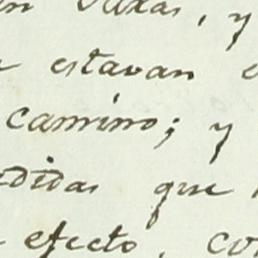 , y
estavan
camino; y
didas que
efecto, con